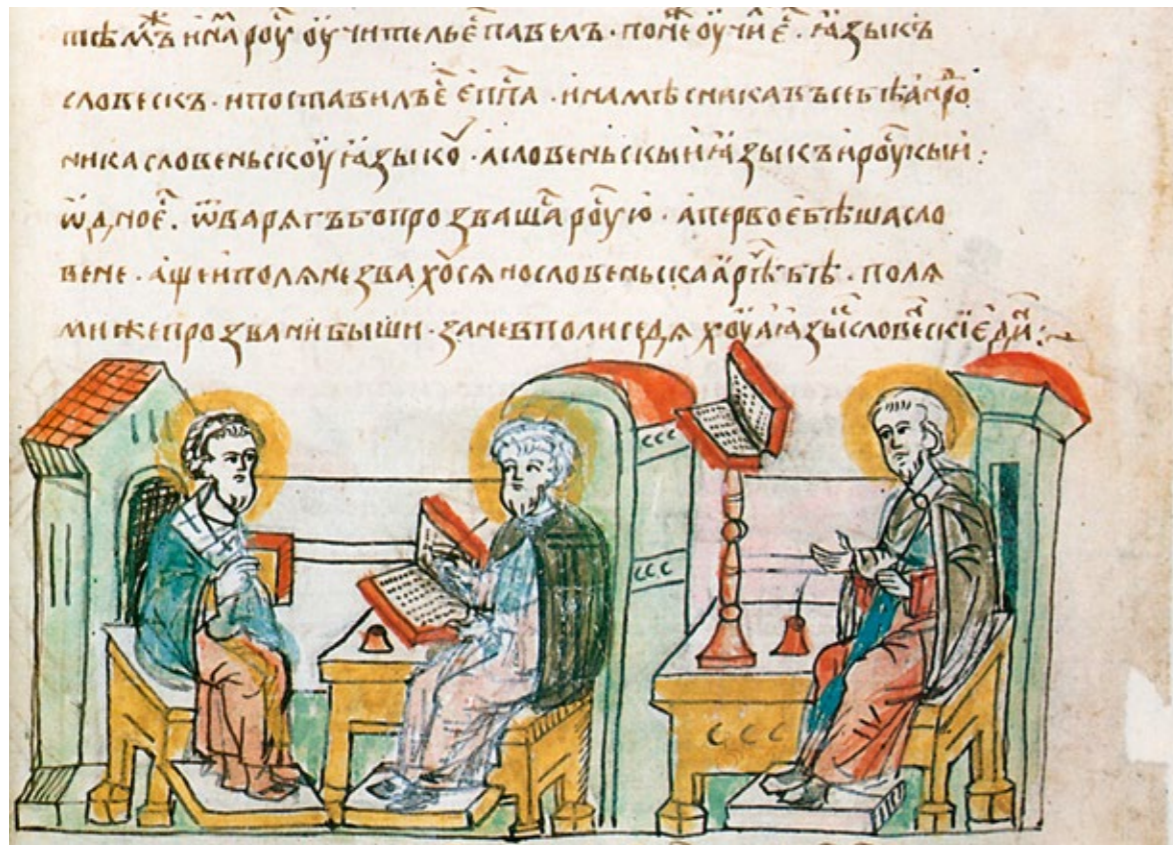 тѣмъ же и намъ роуⷭ҇ оучитель е҃ⷭ павелъ · понеⷤ оучи е҃ⷭ · ꙗзыкъ
словескъ · и поставилъ е҃ⷭ еп҃па · и намѣсника въ себѣ андро
ника словеньскоу ꙗзыкоⷹ · а словеньскыи ꙗзыкъ и роускыи :
ѿдно е҃ⷭ · ѿ варягъ бо прозвашаⷭ҇ роуⷭ҇ю · а первое бѣша сло
вене · аще и поляне звахоⷭ҇ся но словеньскаа рⷱ҇ѣ бѣ · поля
ми же прозвани быши · зане в поли седяхоу а ꙗзыⷦ҇ словеⷩ҇скїи едиⷩ҇ :~